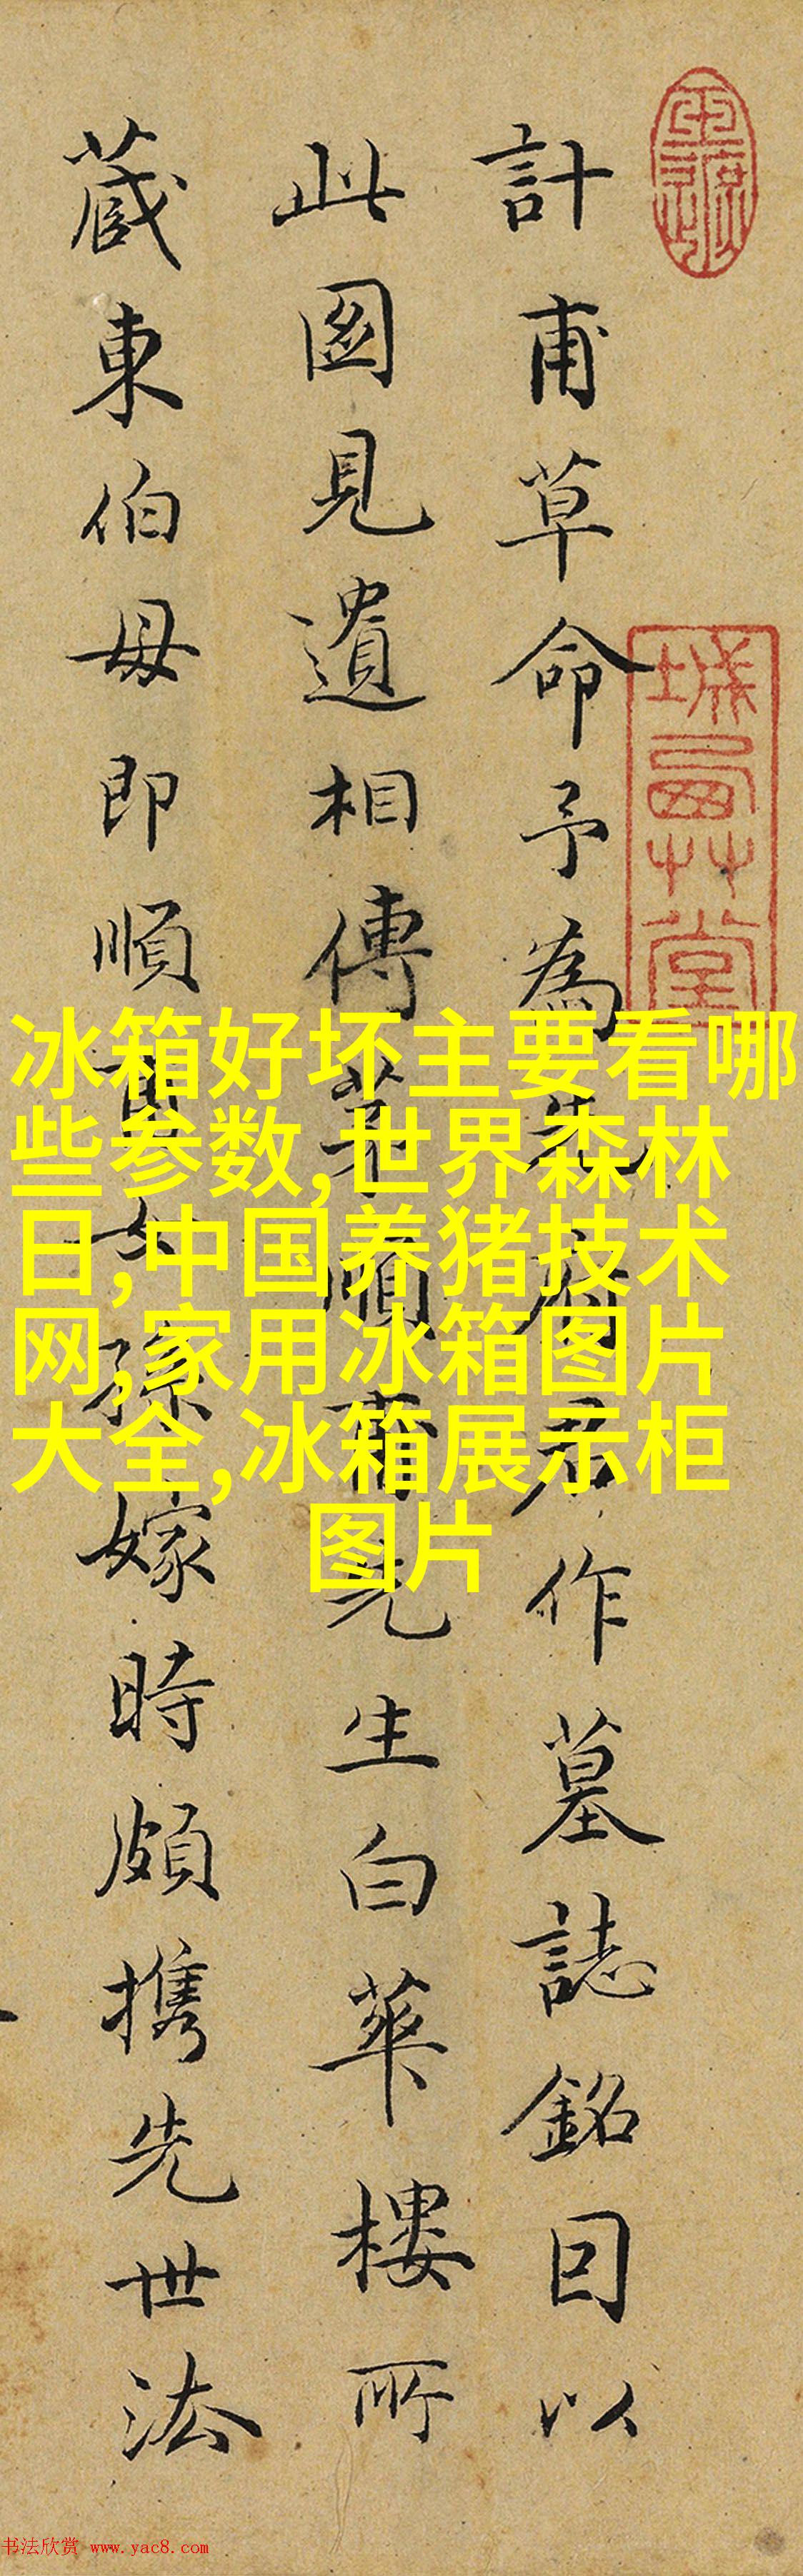 計甫草命予為先府君作墓誌銘囙以
此圖見遺相傳茅順甫先生白華樓所
蔵東伯母即順甫女孫嫁時頗携先世法
城曲艸堂
冰箱好坏主要看哪
些参数,世界森林
日,中国养猪技术
网,家用冰箱图片
大全,冰箱展示柜
图片
书法欣赏 www.yac8.com